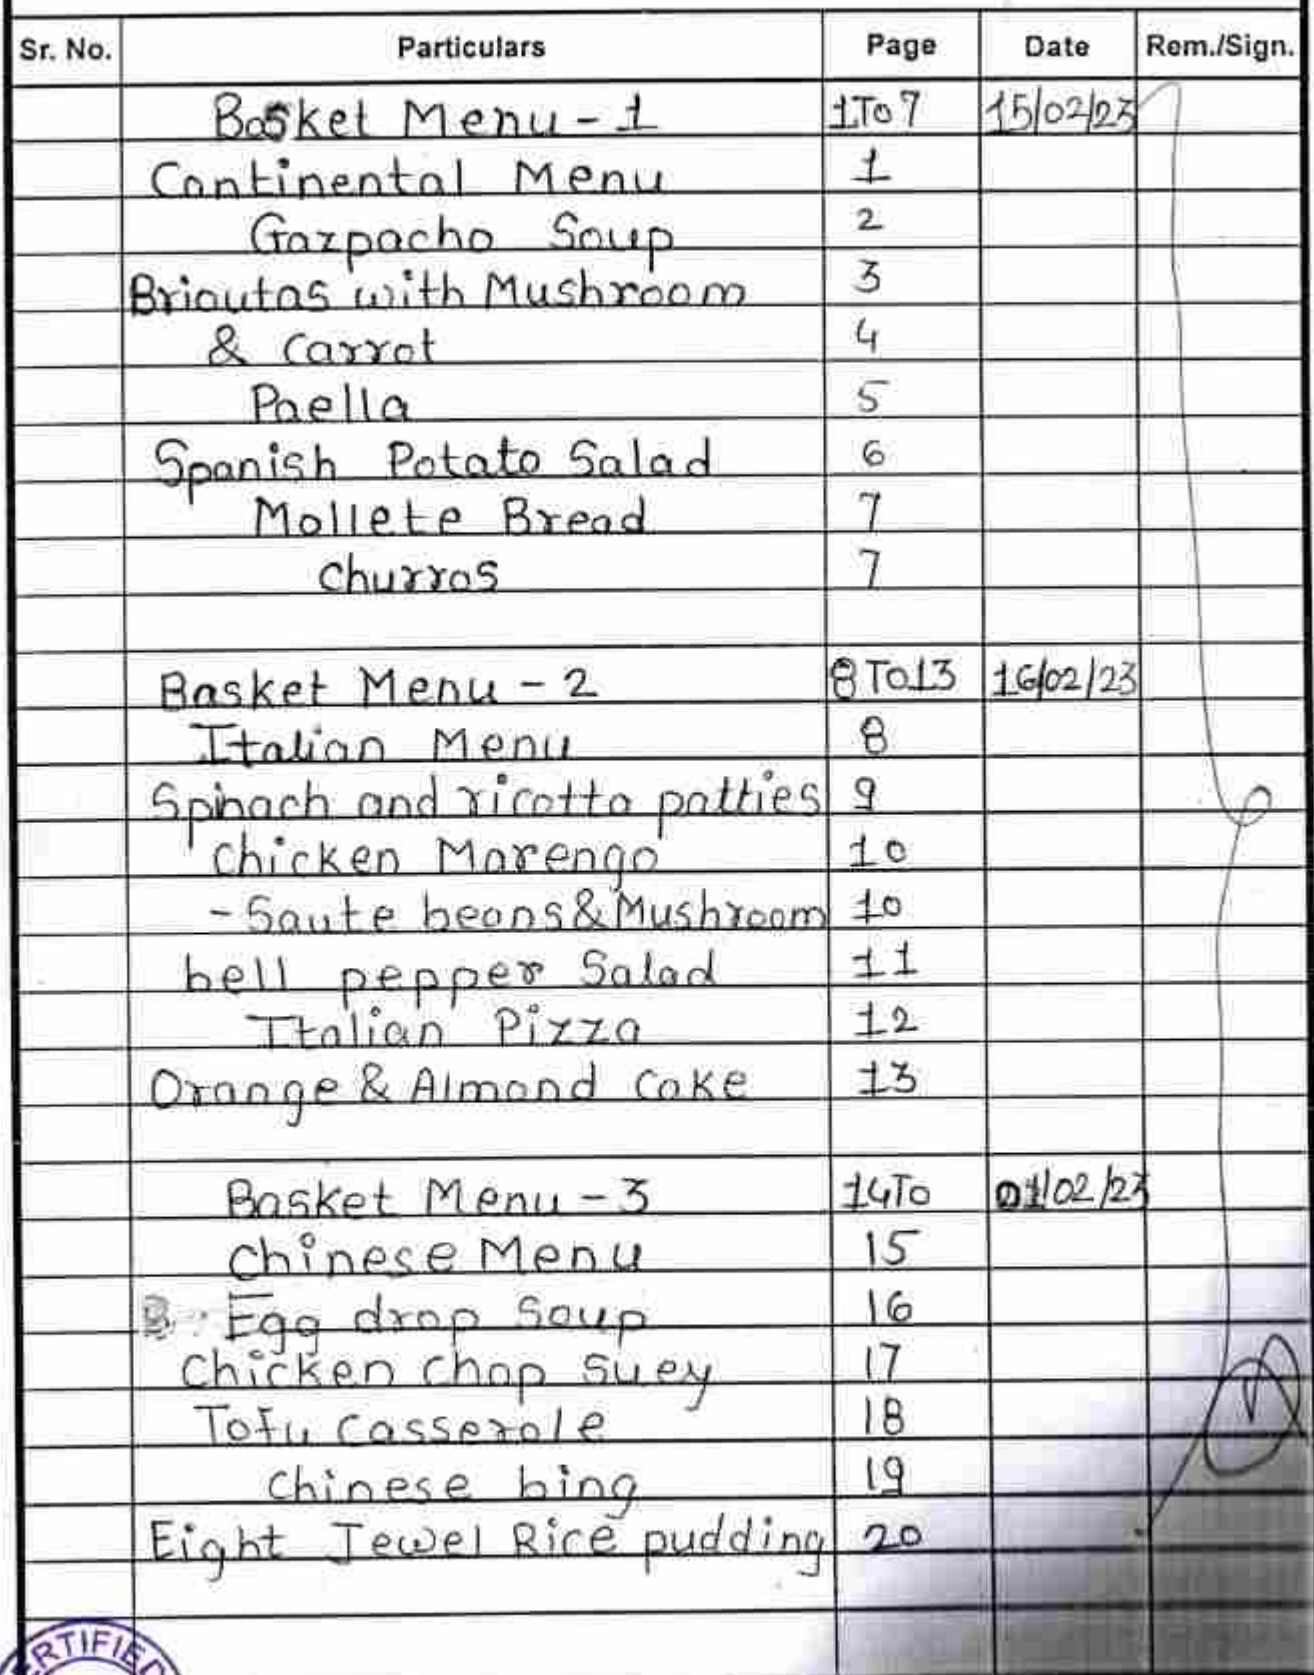 Sr. No. Particulars Page Date Rem./Sign.
Basket Menu - 1 1To7 15/02/23
Continental Menu 1
Gazpacho Soup 2
Brioutas with Mushroom 3
& Carrot 4
Paella 5
Spanish Potato Salad 6
Mollete Bread 7
Churros 7
Basket Menu - 2 8To13 16/02/23
Italian Menu 8
Spinach and ricotta patties 9
Chicken Marengo 10
- Saute beans & Mushroom 10
bell pepper Salad 11
Italian Pizza 12
Orange & Almond Cake 13
Basket Menu - 3 14To 01/02/23
Chinese Menu 15
Egg drop Soup 16
Chicken Chop Suey 17
Tofu Casserole 18
Chinese bing 19
Eight Jewel Rice pudding 20